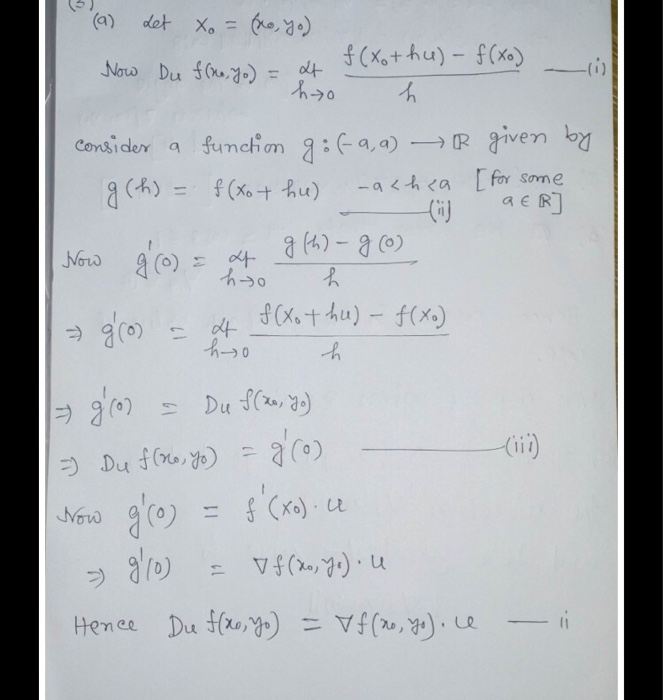 (5)
(a) Let X₀ = (x₀, y₀)
Now Du f(x₀, y₀) = Lt h→0 f(X₀+hu) - f(X₀) / h —(i)
consider a function g : (-a, a) → ℝ given by
g(h) = f(X₀ + hu) -a < h < a [for some a ∈ ℝ] —(ii)
Now g'(0) = Lt h→0 g(h) - g(0) / h
⇒ g'(0) = Lt h→0 f(X₀ + hu) - f(X₀) / h
⇒ g'(0) = Du f(x₀, y₀)
⇒ Du f(x₀, y₀) = g'(0) —(iii)
Now g'(0) = f'(X₀) · u
⇒ g'(0) = ∇f(x₀, y₀) · u
Hence Du f(x₀, y₀) = ∇f(x₀, y₀) · u — ii